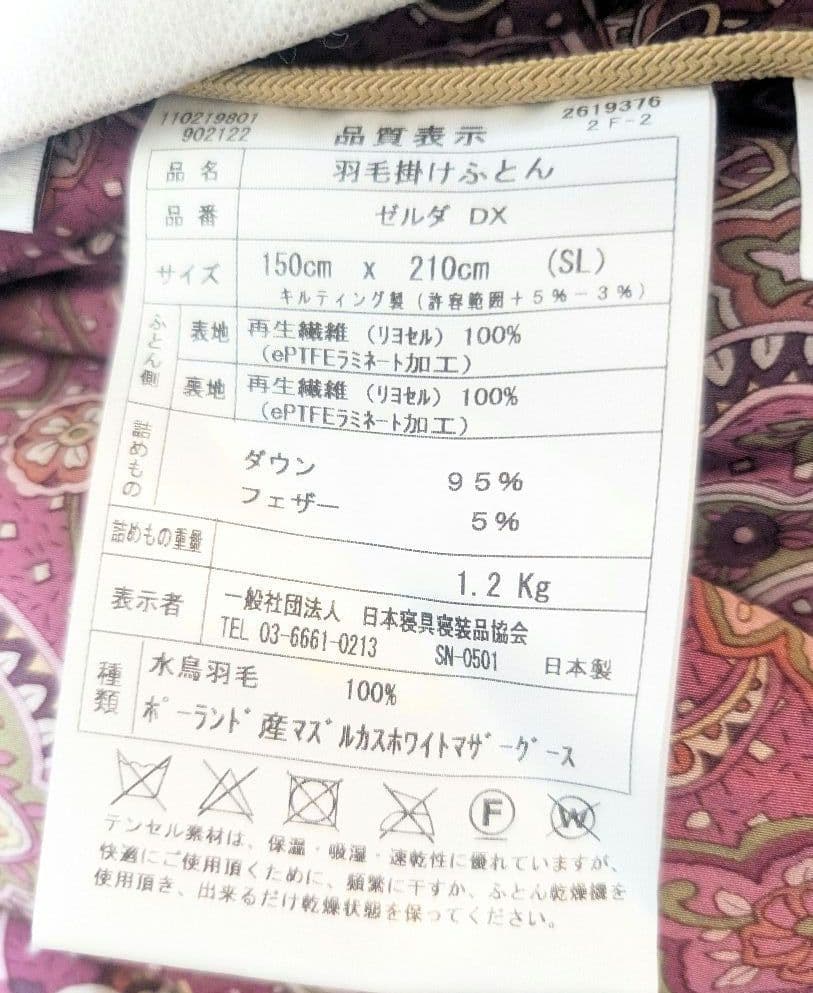 110219801
902122
品質表示
2619376
2F-2
品名 羽毛掛けふとん
品番 ゼルダ DX
サイズ 150cm x 210cm (SL)
キルティング製(許容範囲+5%-3%)
ふとん側
表地 再生繊維 (リヨセル) 100%
(ePTFEラミネート加工)
裏地 再生繊維 (リヨセル) 100%
(ePTFEラミネート加工)
詰めもの
ダウン 95%
フェザー 5%
詰めもの重量 1.2 Kg
表示者 一般社団法人 日本寝具寝装品協会
TEL 03-6661-0213 SN-0501 日本製
種類 水鳥羽毛 100%
ポーランド産マズルカスホワイトマザーグース
F W
テンセル素材は、保温・吸湿・速乾性に優れていますが、
快適にご使用頂くために、頻繁に干すか、ふとん乾燥機を
使用頂き、出来るだけ乾燥状態を保ってください。